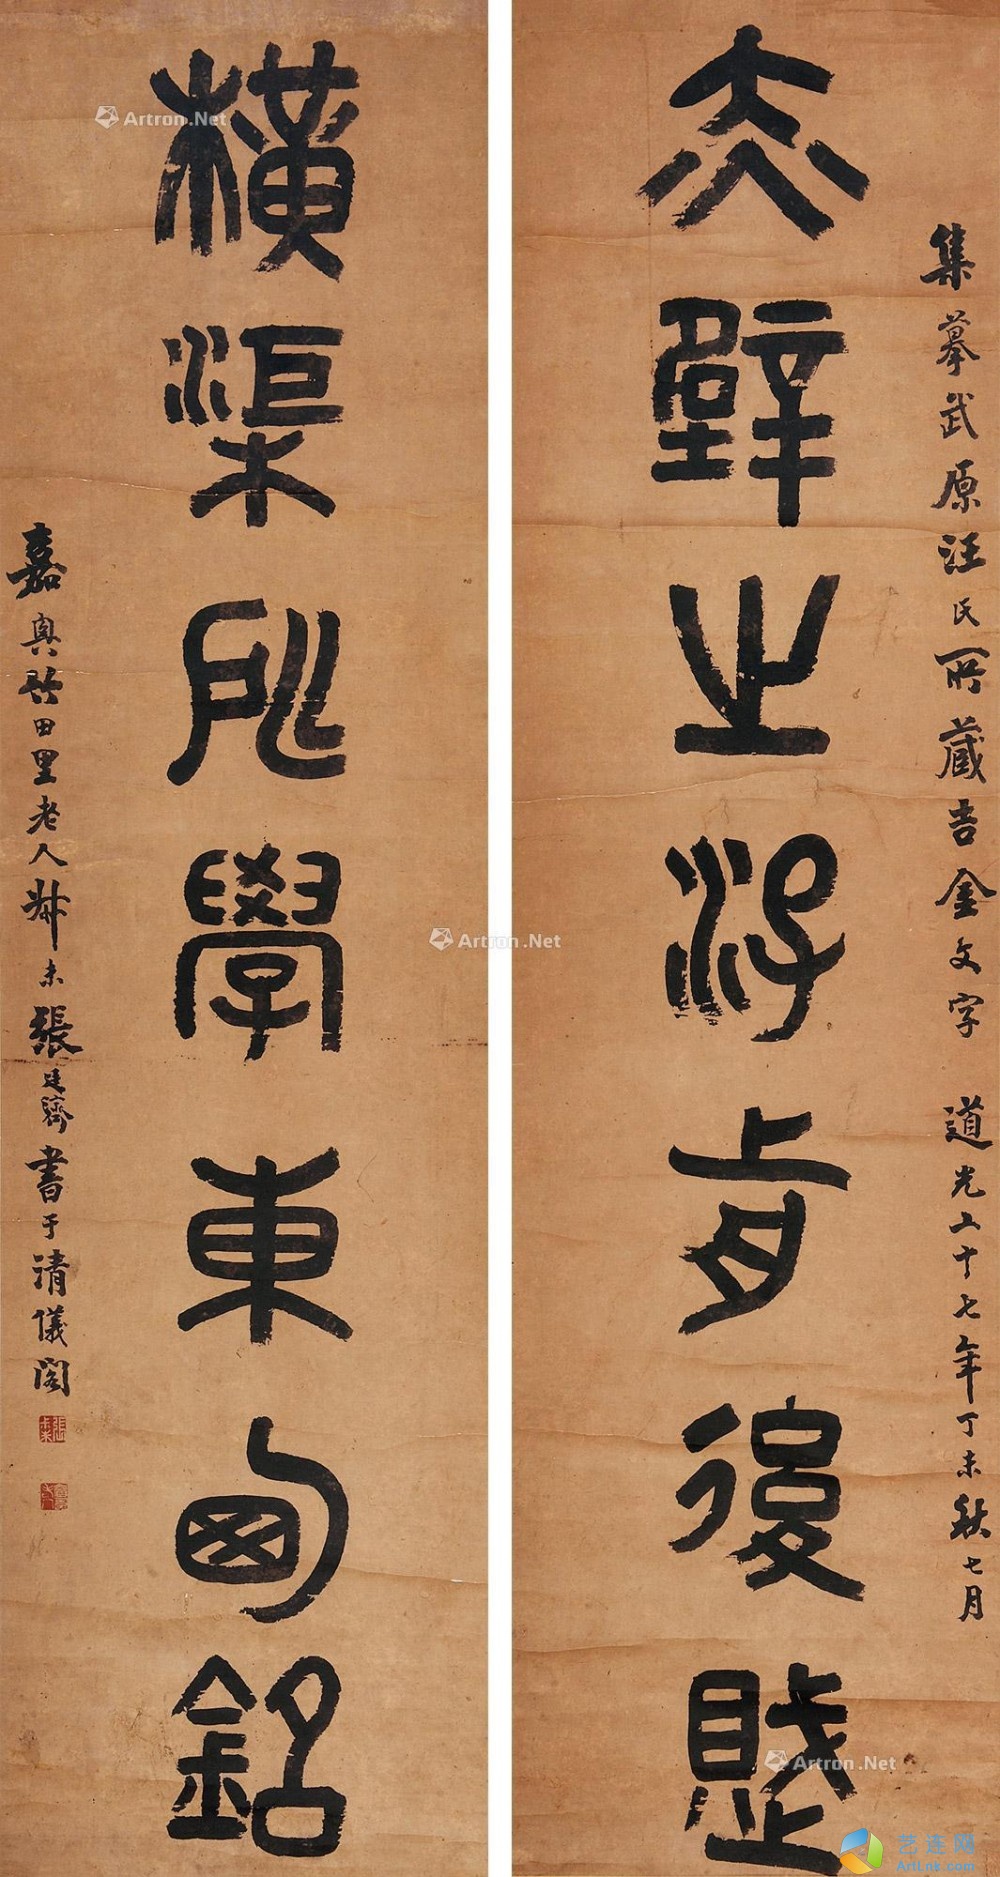 集摹武原汪氏所藏吉金文字 道光二十七年丁未秋七月
赤壁之游前後賦
橫渠所學東西銘
嘉興竹田里老人叔未張廷濟書于清儀閣
Artron.Net
Artron.Net
Artron.Net
艺连网
ArtLnk.com